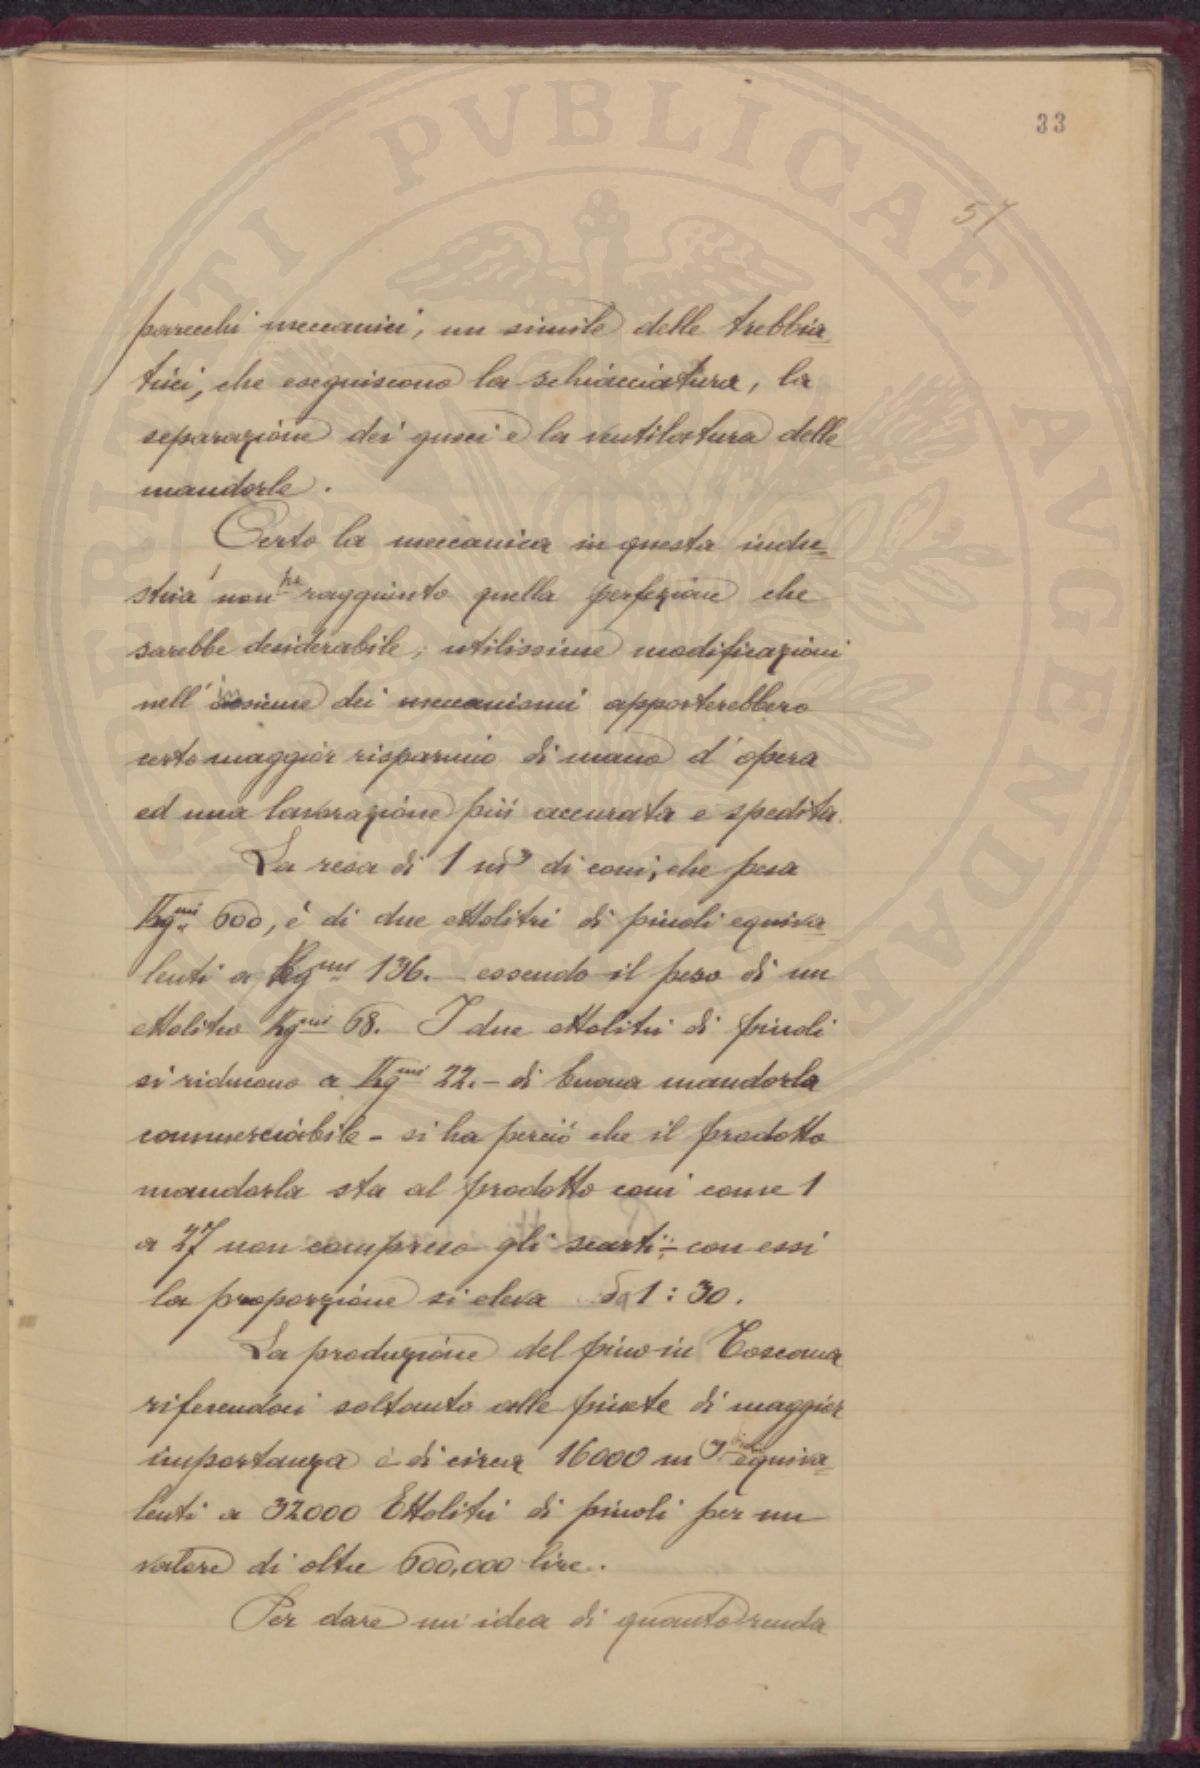 33
57
parecchi meccanici, un simile delle trebbia
trici, che eseguiscono la schiacciatura, la
separazione dei gusci e la ventilatura delle
mandorle.
Certo la meccanica in questa indu=
stria non ha raggiunto quella perfezione che
sarebbe desiderabile; utilissime modificazioni
nell'insieme dei meccanismi apporterebbero
certo maggior risparmio di mano d'opera
ed una lavorazione più accurata e spedita.
La resa di 1 m3 di coni, che pesa
Kgmi 600, è di due ettolitri di pinoli equiva
lenti a Kgmi 136. essendo il peso di un
ettolitro Kgmi 68. I due ettolitri di pinoli
si riducono a Kgmi 22.- di buona mandorla
commerciabile - si ha perciò che il prodotto
mandorla sta al prodotto coni come 1
a 27 non compreso gli scarti; - con essi
la proporzione si eleva da 1 : 30.
La produzione del pino in Toscana
riferendoci soltanto alle pinete di maggior
importanza è di circa 16000 m3 equiva=
lenti a 32000 Ettolitri di pinoli per un
valore di oltre 600,000 lire.
Per dare un'idea di quanto renda
PERITI PVBLICAE AVGENDAE